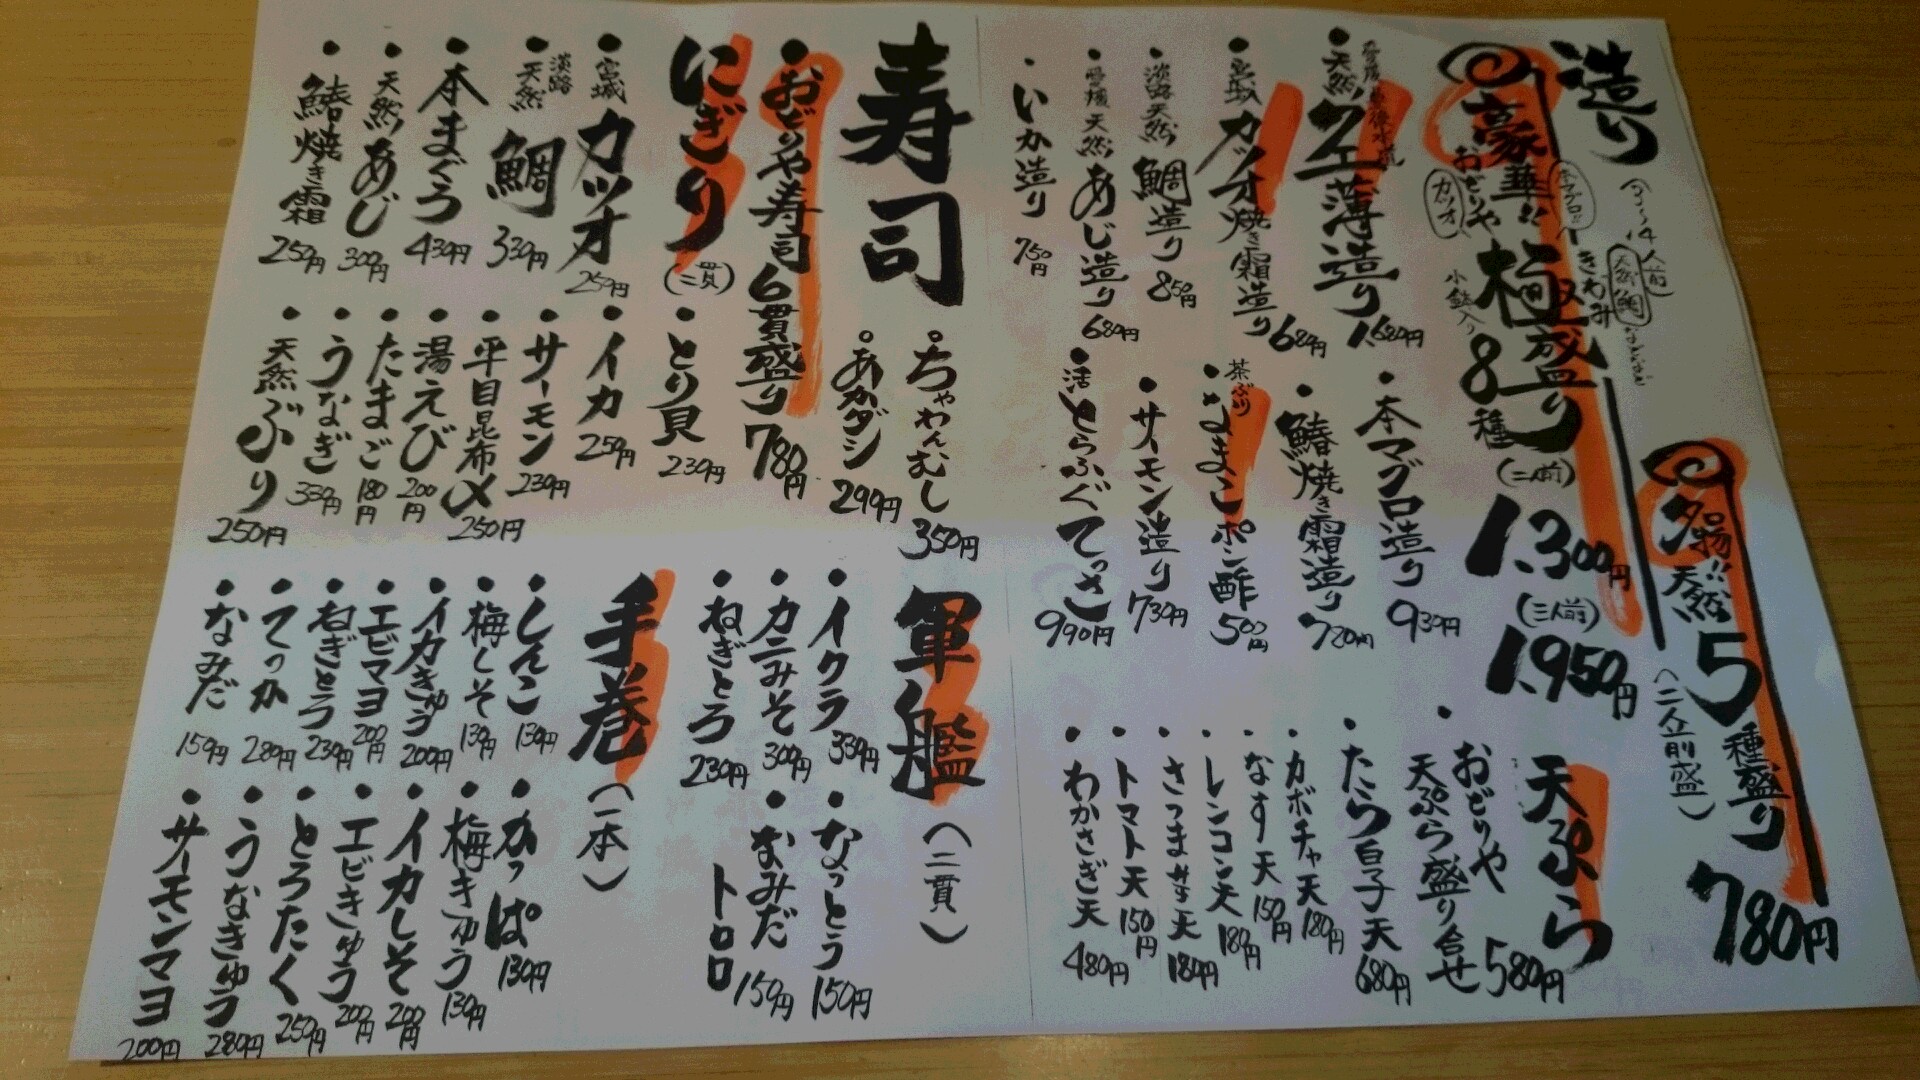 造り
(3〜4人前)
本マグロ!!
天然鯛
などなど
カツオ
豪華!! おどりや
極み盛り
きわみ
小鉢入り
8種
(二人前)
1.300円
(三人前)
1.950円
夕得!!
天然
5種盛り
(二人前盛)
780円
天然クエ薄造り 1.680円
カツオ焼き霜造り 680円
淡路天然 鯛造り 850円
愛媛天然 あじ造り 680円
いか造り 750円
本マグロ造り 930円
鰆焼き霜造り 720円
茶ぶり なまこポン酢 500円
サーモン造り 730円
活とらふぐてっさ 990円
天ぷら
おどりや天ぷら盛り合せ 580円
たら白子天 680円
カボチャ天 180円
なす天 150円
レンコン天 180円
さつま芋天 180円
トマト天 150円
わかさぎ天 480円
寿司
ちゃわんむし 350円
あかダシ 299円
おどりや寿司6貫盛り 780円
にぎり (二貫)
宮城 カツオ 250円
淡路天然 鯛 330円
本まぐろ 430円
天然あじ 300円
鰆焼き霜 250円
とり貝 230円
イカ 250円
サーモン 230円
平目昆布〆 250円
湯えび 200円
たまご 180円
うなぎ 330円
天然ぶり 250円
軍艦 (二貫)
イクラ 330円
カニみそ 300円
ねぎとろ 230円
なっとう 150円
なみだトロロ 150円
手巻 (一本)
しんこ 130円
梅しそ 130円
イカきゅう 200円
エビマヨ 200円
ねぎとろ 230円
てっか 280円
なみだ 150円
かっぱ 130円
梅きゅう 130円
イカしそ 200円
エビきゅう 200円
とろたく 250円
うなきゅう 280円
サーモンマヨ 200円